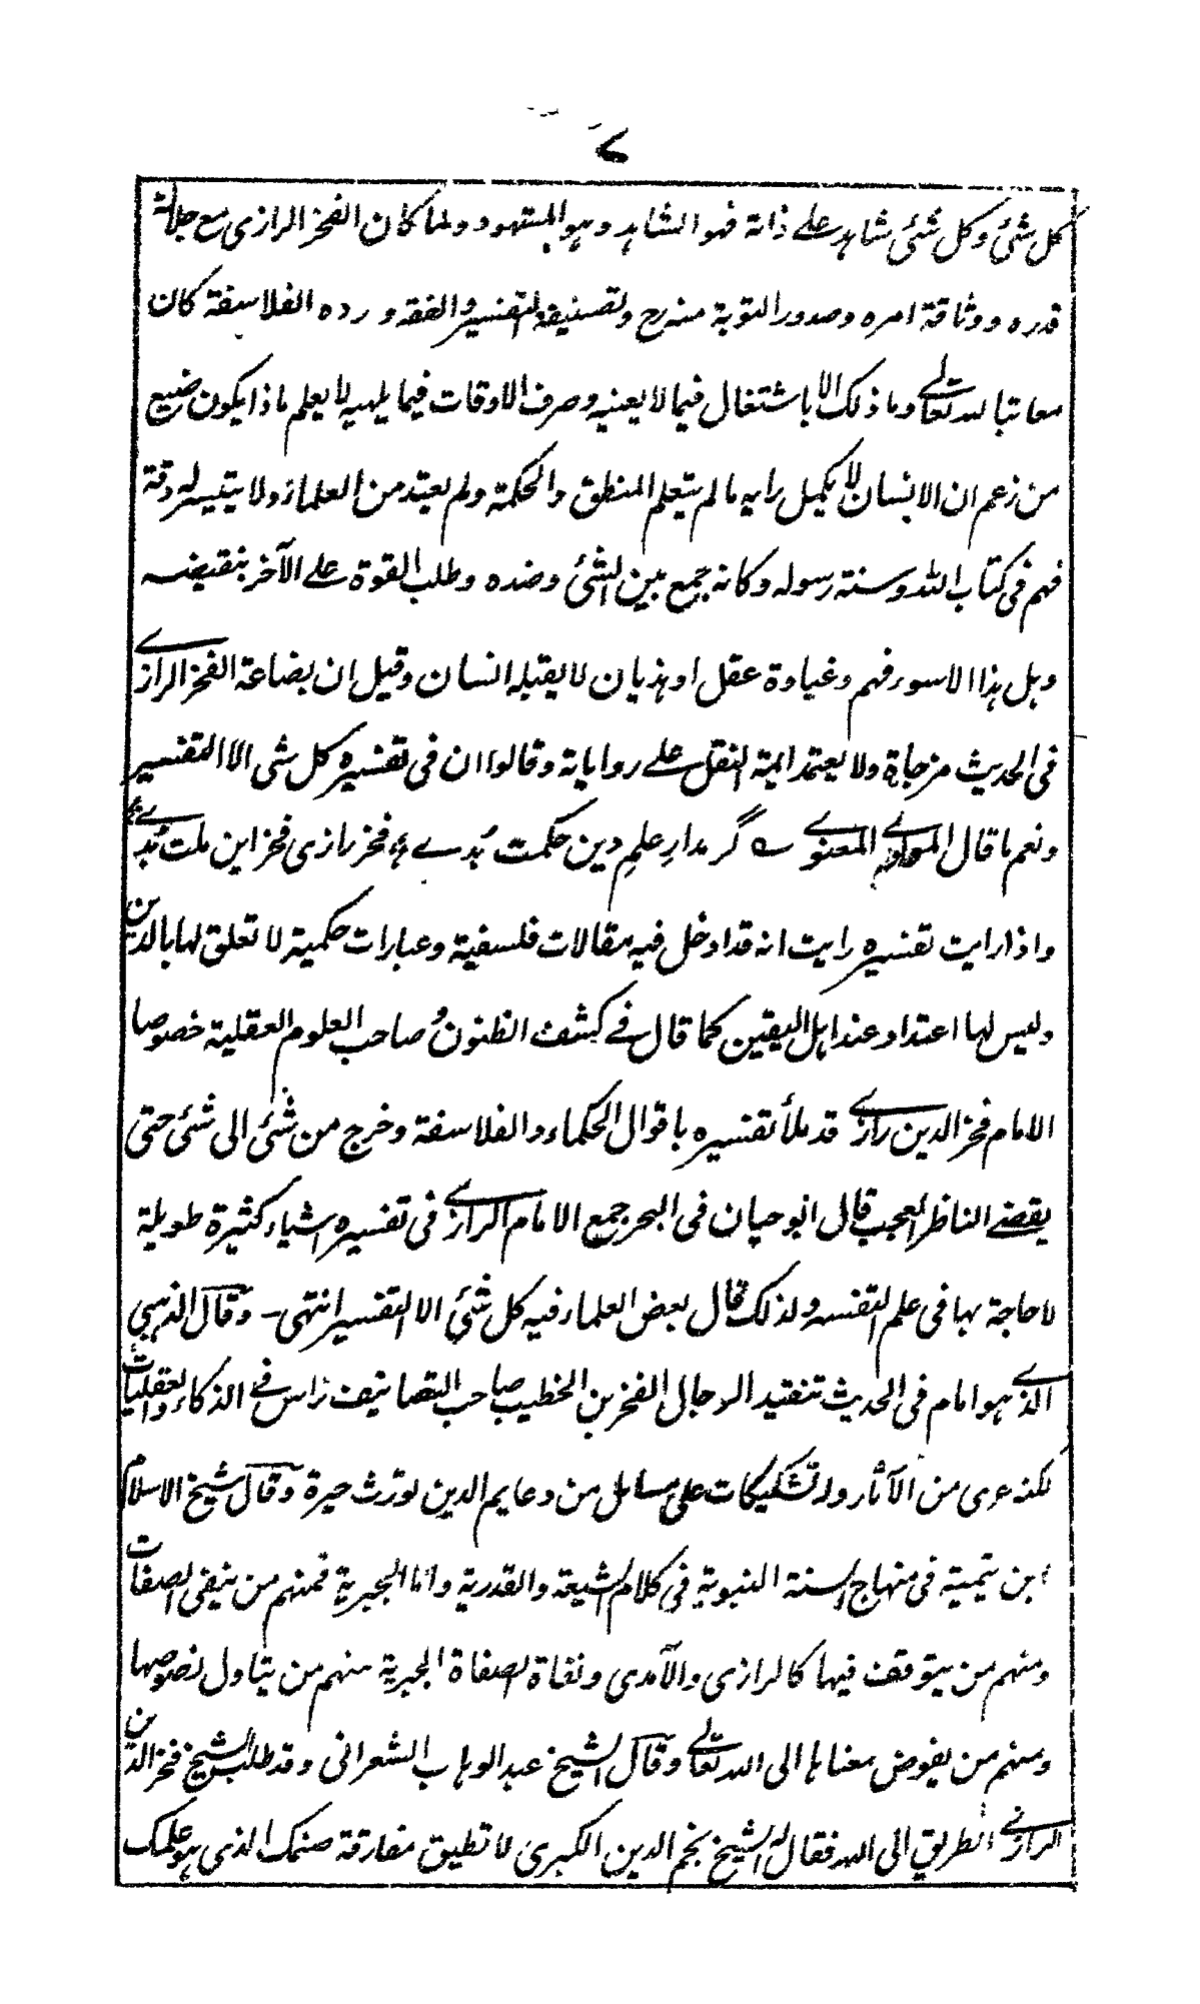 ۷
كل شئ وكل شئ شاهد على ذاته فهو الشاهد وهو المشهود ولما كان الفخر الرازى مع جلالة
قدره ووثاقة امره وصدور التوبة منه رح وتصنيفه التفسير والفقه ورده الفلاسفة كان
معاتبا لله تعالى وما ذلك الا باشتغال فيما لا يعنيه وصرف الاوقات فيما يلهيه لا يعلم ماذا يكون ضيع
من زعم ان الانسان لا يكمل رايه ما لم يتعلم المنطق والحكمة ولم يعتد من العلماء ولا يتيسر له دقة
فهم فى كتاب الله وسنة رسوله وكانه جمع بين الشئ وضده وطلب القوة على الآخر بنقيضه
وهل هذا الا سوء فهم وغباوة عقل او هذيان لا يقبله انسان وقيل ان بضاعة الفخر الرازى
فى الحديث مزجاة ولا يعتمد ايمة النقل على رواياته وقالوا ان فى تفسيره كل شى الا التفسير
ونعم ما قال المولوى المعنوى ؎ گر مدارِ علمِ دین حکمت بُدے ؛ فخر رازی فخر این ملت بُدے ؛
واذا رايت تفسيره رايت انه قد ادخل فيه مقالات فلسفية وعبارات حكمية لا تعلق لها بالدين
وليس لها اعتداد عند اهل اليقين كما قال فى كشف الظنون و صاحب العلوم العقلية خصوصا
الامام فخر الدين رازى قد ملأ تفسيره باقوال الحكماء والفلاسفة وخرج من شئ الى شئ حتى
يقضى الناظر العجب قال ابو حيان فى البحر جمع الامام الرازى فى تفسيره اشياء كثيرة طويلة
لا حاجة بها فى علم التفسير ولذلك قال بعض العلماء فيه كل شئ الا التفسير انتهى - وقال الذهبى
الذى هو امام فى الحديث تنقيد الرجال الفخر بن الخطيب صاحب التصانيف راس فى الذكاء والعقليات
لكنه عرى من الآثار وله تشكيكات على مسائل من دعايم الدين تورث حيرة وقال شيخ الاسلام
ابن تيمية فى منهاج السنة النبوية فى كلام الشيعة والقدرية واما الجبرية فمنهم من ينفى الصفات
ومنهم من يتوقف فيها كالرازى والآمدى ونفاة الصفاة الجبرية منهم من يتاول نصوصها
ومنهم من يفوض معناها الى الله تعالى وقال الشيخ عبد الوهاب الشعرانى وقد طلب الشيخ فخر الدين
الرازى الطريق الى الله فقال له الشيخ نجم الدين الكبرى لا تطيق مفارقة صنمك الذى هو علمك